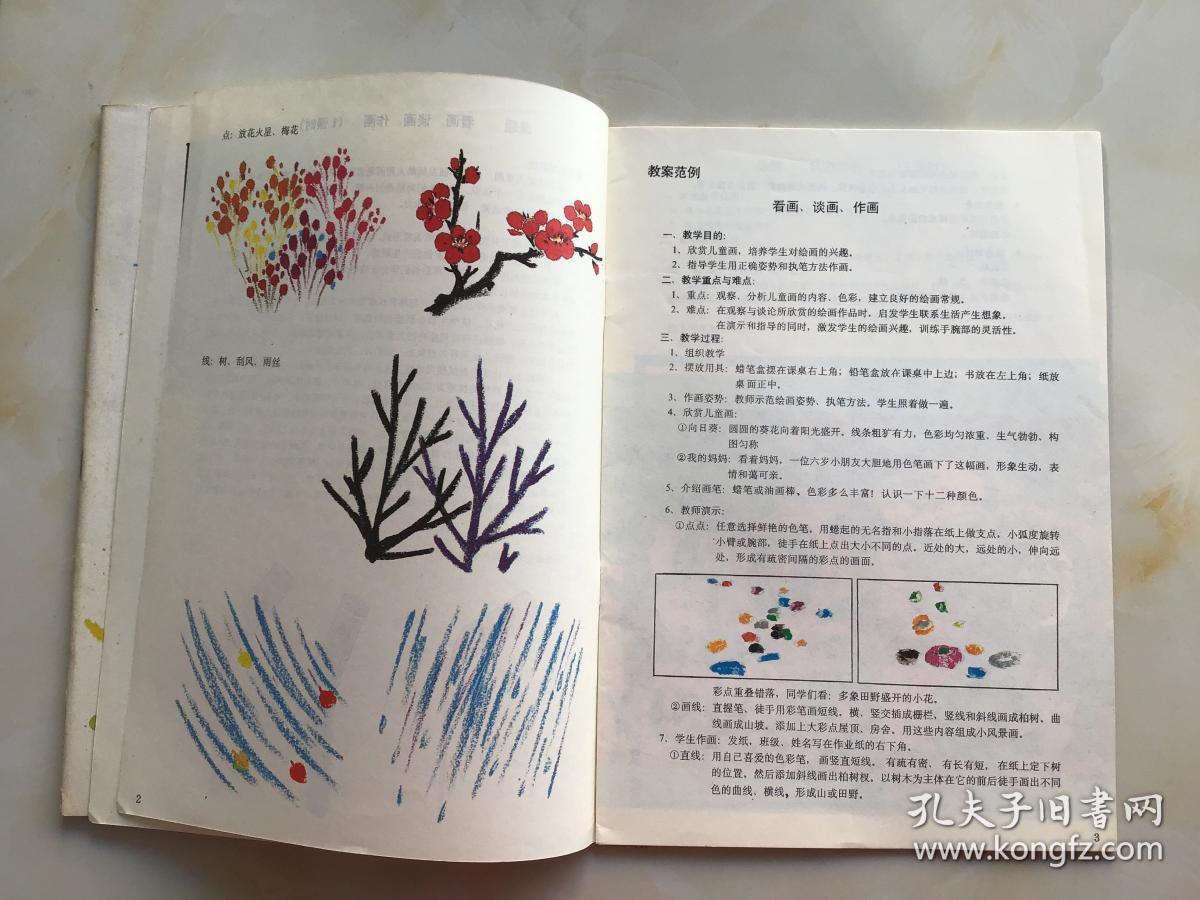 点：放花火星、梅花
线：树、刮风、雨丝
2
教案范例
看画、谈画、作画
一、教学目的：
1、欣赏儿童画，培养学生对绘画的兴趣。
2、指导学生用正确姿势和执笔方法作画。
二、教学重点与难点：
1、重点：观察、分析儿童画的内容、色彩，建立良好的绘画常规。
2、难点：在观察与谈论所欣赏的绘画作品时，启发学生联系生活产生想象。
在演示和指导的同时，激发学生的绘画兴趣，训练手腕部的灵活性。
三、教学过程：
1、组织教学
2、摆放用具：蜡笔盒摆在课桌右上角；铅笔盒放在课桌中上边；书放在左上角；纸放
桌面正中。
3、作画姿势：教师示范绘画姿势、执笔方法。学生照着做一遍。
4、欣赏儿童画：
①向日葵：圆圆的葵花向着阳光盛开。线条粗犷有力，色彩均匀浓重、生气勃勃、构
图匀称
②我的妈妈：看着妈妈，一位六岁小朋友大胆地用色笔画下了这幅画，形象生动，表
情和蔼可亲。
5、介绍画笔：蜡笔或油画棒、色彩多么丰富！认识一下十二种颜色。
6、教师演示：
①点点：任意选择鲜艳的色笔。用蜷起的无名指和小指落在纸上做支点，小弧度旋转
小臂或腕部，徒手在纸上点出大小不同的点。近处的大，远处的小，伸向远
处，形成有疏密间隔的彩点的画面。
彩点重叠错落，同学们看：多象田野盛开的小花。
②画线：直握笔、徒手用彩笔画短线。横、竖交插成栅栏，竖线和斜线画成柏树。曲
线画成山坡。添加上大彩点屋顶、房舍。用这些内容组成小风景画。
7、学生作画：发纸，班级、姓名写在作业纸的右下角。
①直线：用自己喜爱的色彩笔，画竖直短线。有疏有密、有长有短，在纸上定下树
的位置，然后添加斜线画出柏树杈。以树木为主体在它的前后徒手画出不同
色的曲线、横线，形成山或田野。
3
孔夫子旧书网
www.kongfz.com